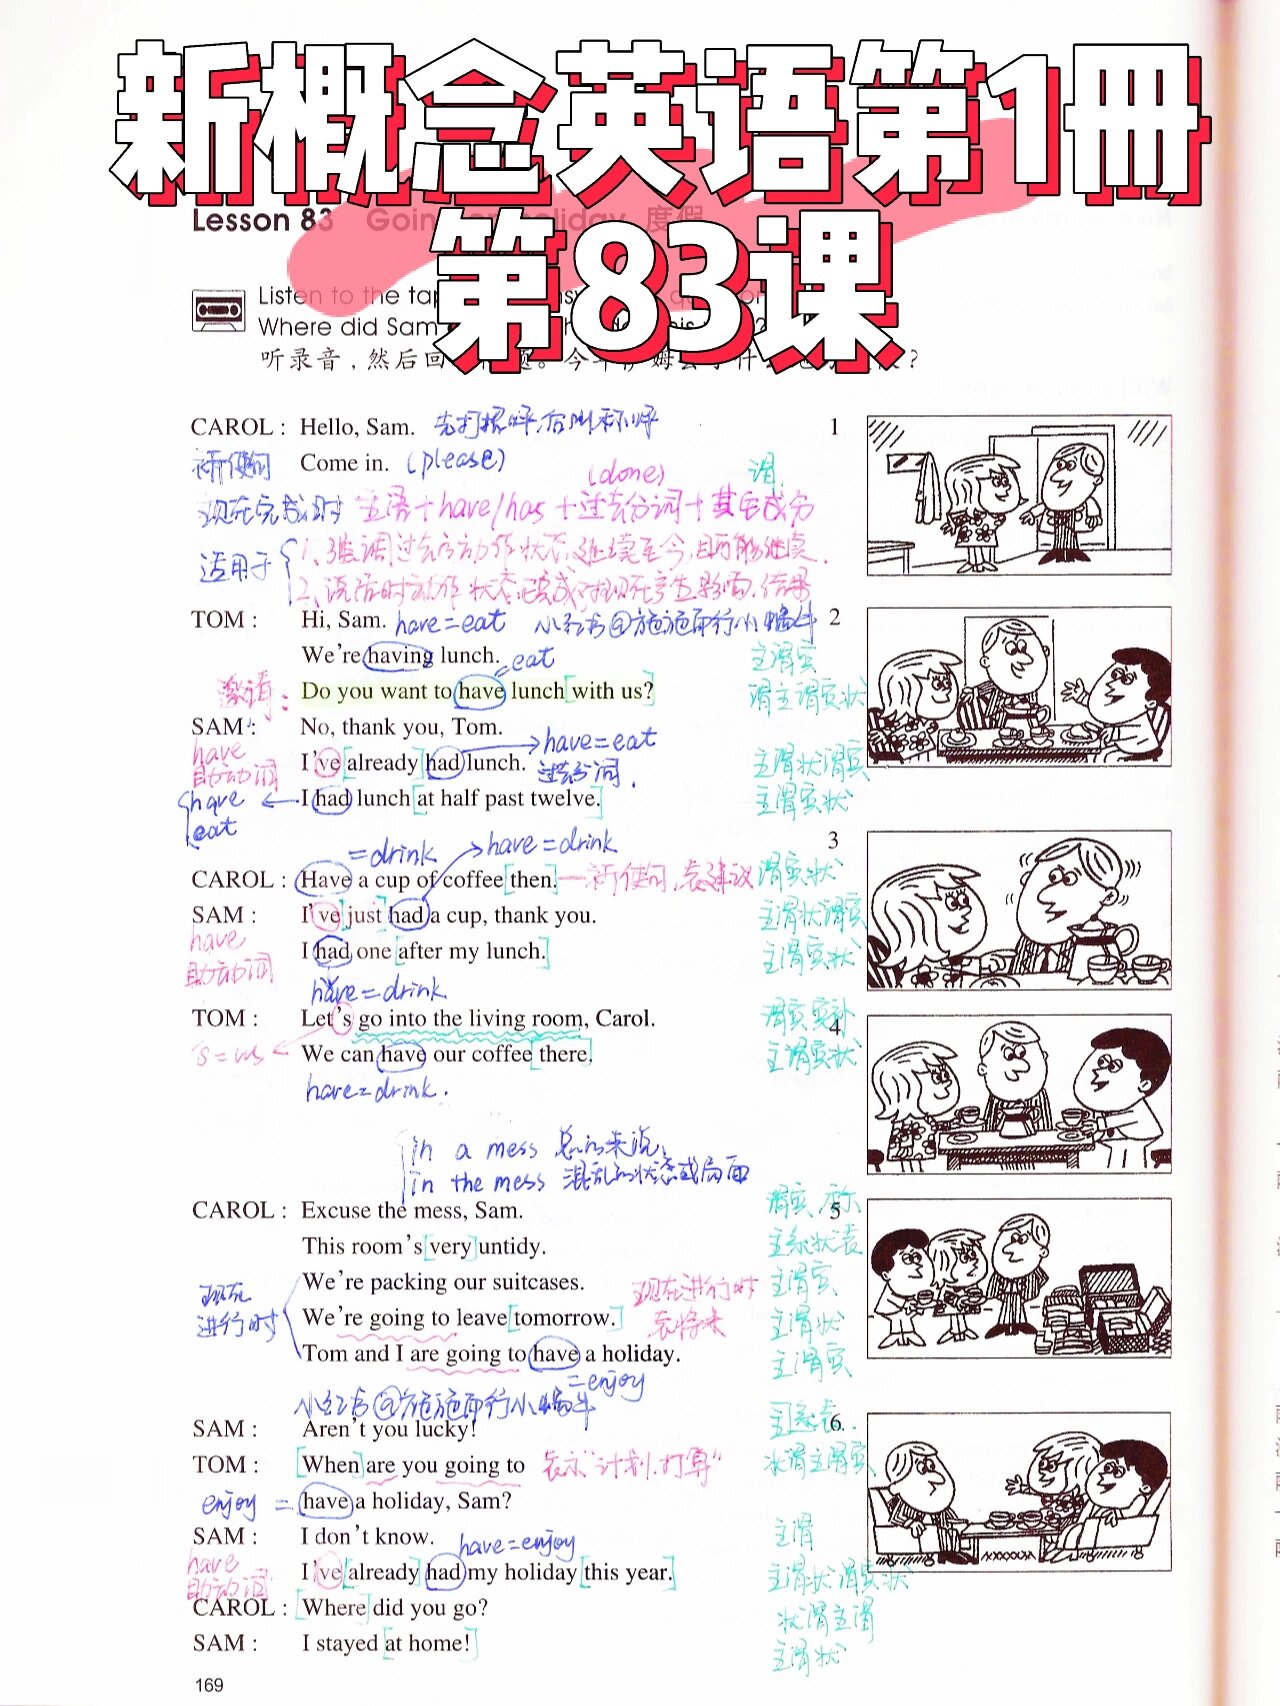 新概念英语第1册
第83课
Lesson 83 Goin holiday 度假
Listen to the tap
Where did Sam
听录音，然后回
CAROL : Hello, Sam. 先打招呼,后叫称呼
祈使句 Come in. (please)
(done) 谓.
现在完成时 主语+have/has+过去分词+其它成分
适用于 1、强调过去的动作状态,延续至今,且可能继续.
2、说话时动作状态已完成,对现在产生影响、结果
TOM : Hi, Sam. have=eat 小红书@施施而行小蜗牛 2
We're having lunch. =eat 主谓宾
邀请: Do you want to have lunch [with us?] 谓主谓宾状
SAM : No, thank you, Tom.
have 助动词 I've [already] had lunch. → have=eat 过去分词. 主谓状谓宾
have eat ← I had lunch [at half past twelve.] 主谓宾状
=drink → have=drink 3
CAROL : Have a cup of coffee [then.] — 祈使句,表建议 谓宾状
SAM : I've [just] had a cup, thank you. 主谓状谓宾
have 助动词 I had one [after my lunch.] 主谓宾状
have=drink
TOM : Let's go into the living room, Carol. 谓宾宾补 4
's=us We can have our coffee [there.] 主谓宾状
have=drink.
in a mess 总的来说,
in the mess 混乱的状态或局面
CAROL : Excuse the mess, Sam. 谓宾,称 5
This room's [very] untidy. 主系状表
We're packing our suitcases. 主谓宾
现在进行时 We're going to leave [tomorrow.] 现在进行时表将来 主谓状
Tom and I are going to have a holiday. 主谓宾
=enjoy
小红书@施施而行小蜗牛
SAM : Aren't you lucky! 6
TOM : [When] are you going to 表示"计划.打算" 状谓主谓宾
enjoy = have a holiday, Sam?
SAM : I don't know. have=enjoy 主谓
have 助动词 I've [already] had my holiday [this year.] 主谓状谓宾状
CAROL : [Where] did you go? 状谓主谓
SAM : I stayed [at home!] 主谓状
169